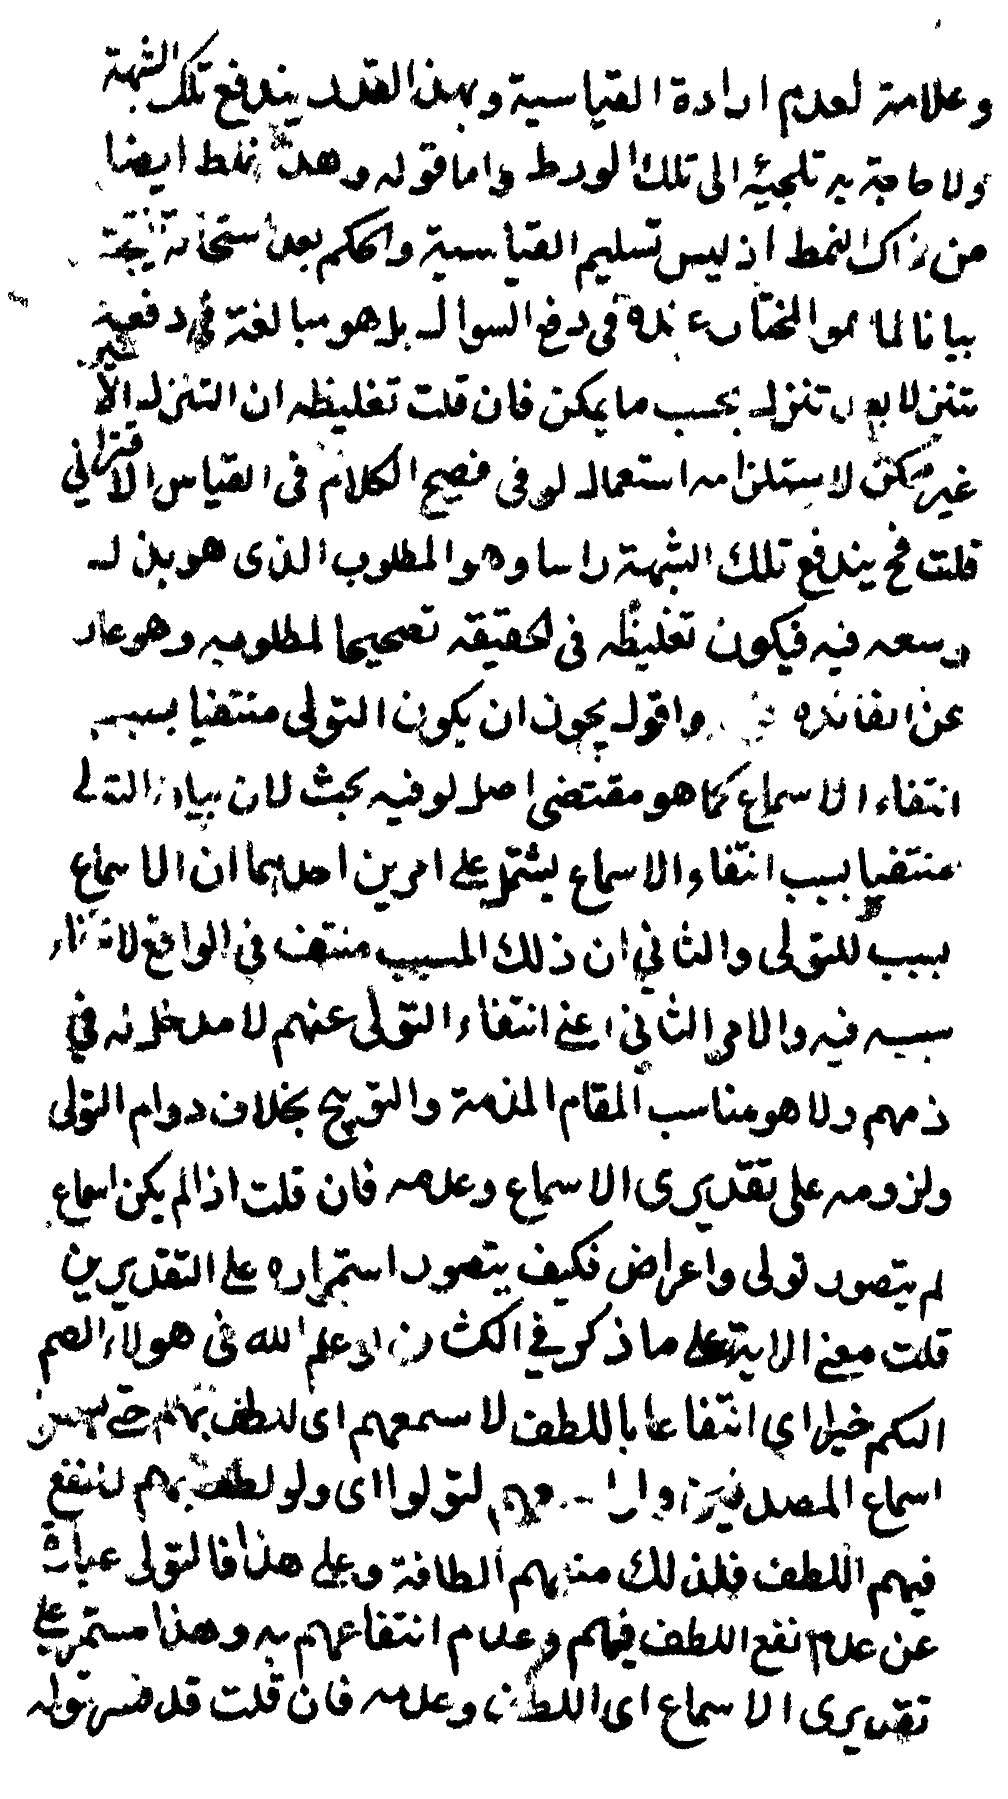 وعلامة لعدم ارادة القياسية وبهذا القدر يندفع تلك الشبهة
ولا حاجة به تلجئه الى تلك الورط واما قوله وهذا غلط ايضا
من ذاك النمط اذ ليس تسليم القياسية والحكم بعد استحالة نتيجة
بيانا لما هو المختار عنده في دفع السوال بل هو مبالغة في دفعه
بتنزل بعد تنزل بحسب ما يمكن فان قلت تغليظه ان التنزل الا
غير ممكن لاستلزامه استعمال لو في فصيح الكلام في القياس الاقتراني
قلت فح يندفع تلك الشبهة راسا وهو المطلوب الذى هو بذل
وسعه فيه فيكون تغليظه في الحقيقه تصحيحا لمطلوبه وهو عار
عن الفائده واقول يجوز ان يكون التولى منتفيا بسبب
انتفاء الاسماع كما هو مقتضى اصل لو فيه بحث لان بيان التولى
منتفيا بسبب انتفاء الاسماع يشتمل على امرين احدهما ان الاسماع
سبب للتولى والثاني ان ذلك المسبب منتف في الواقع لانتفاء
سببه فيه والامر الثاني اعني انتفاء التولى عنهم لا مدخل له في
ذمهم ولا هو مناسب المقام المذمة والتوبيخ بخلاف دوام التولى
ولزومه على تقديرى الاسماع وعدمه فان قلت اذا لم يكن اسماع
لم يتصور تولى واعراض فكيف يتصور استمراره على التقديرين
قلت معنى الاية على ما ذكر في الكشاف ان لو علم الله في هولاء الصم
البكم خيرا اي انتفاعا باللطف لاسمعهم اى للطف بهم حتى
اسماع المصدقين ولو لتولوا اى ولو لطف بهم لما نفع
فيهم اللطف فلذلك منعهم الطافه وعلى هذا فالتولى عبارة
عن عدم نفع اللطف فيهم وعدم انتفاعهم به وهذا مستمر على
تقديرى الاسماع اى اللطف وعدمه فان قلت قد فسر قوله